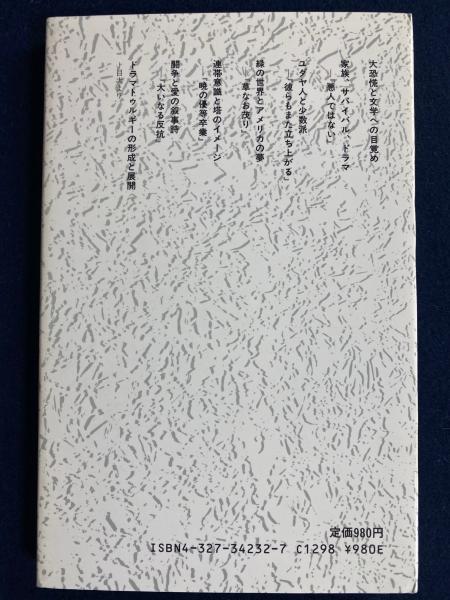 大恐慌と文学への目覚め
家族、サバイバル、ドラマ
「悪人ではない」
ユダヤ人と少数派
「彼らもまた立ち上がる」
緑の世界とアメリカの夢
「草なお茂り」
連帯意識と塔のイメージ
「暁の優等卒業」
闘争と愛の叙事詩
「大いなる反抗」
ドラマトゥルギーの形成と展開
―目次より―
定価980円
ISBN4-327-34232-7 C1298 ¥980E